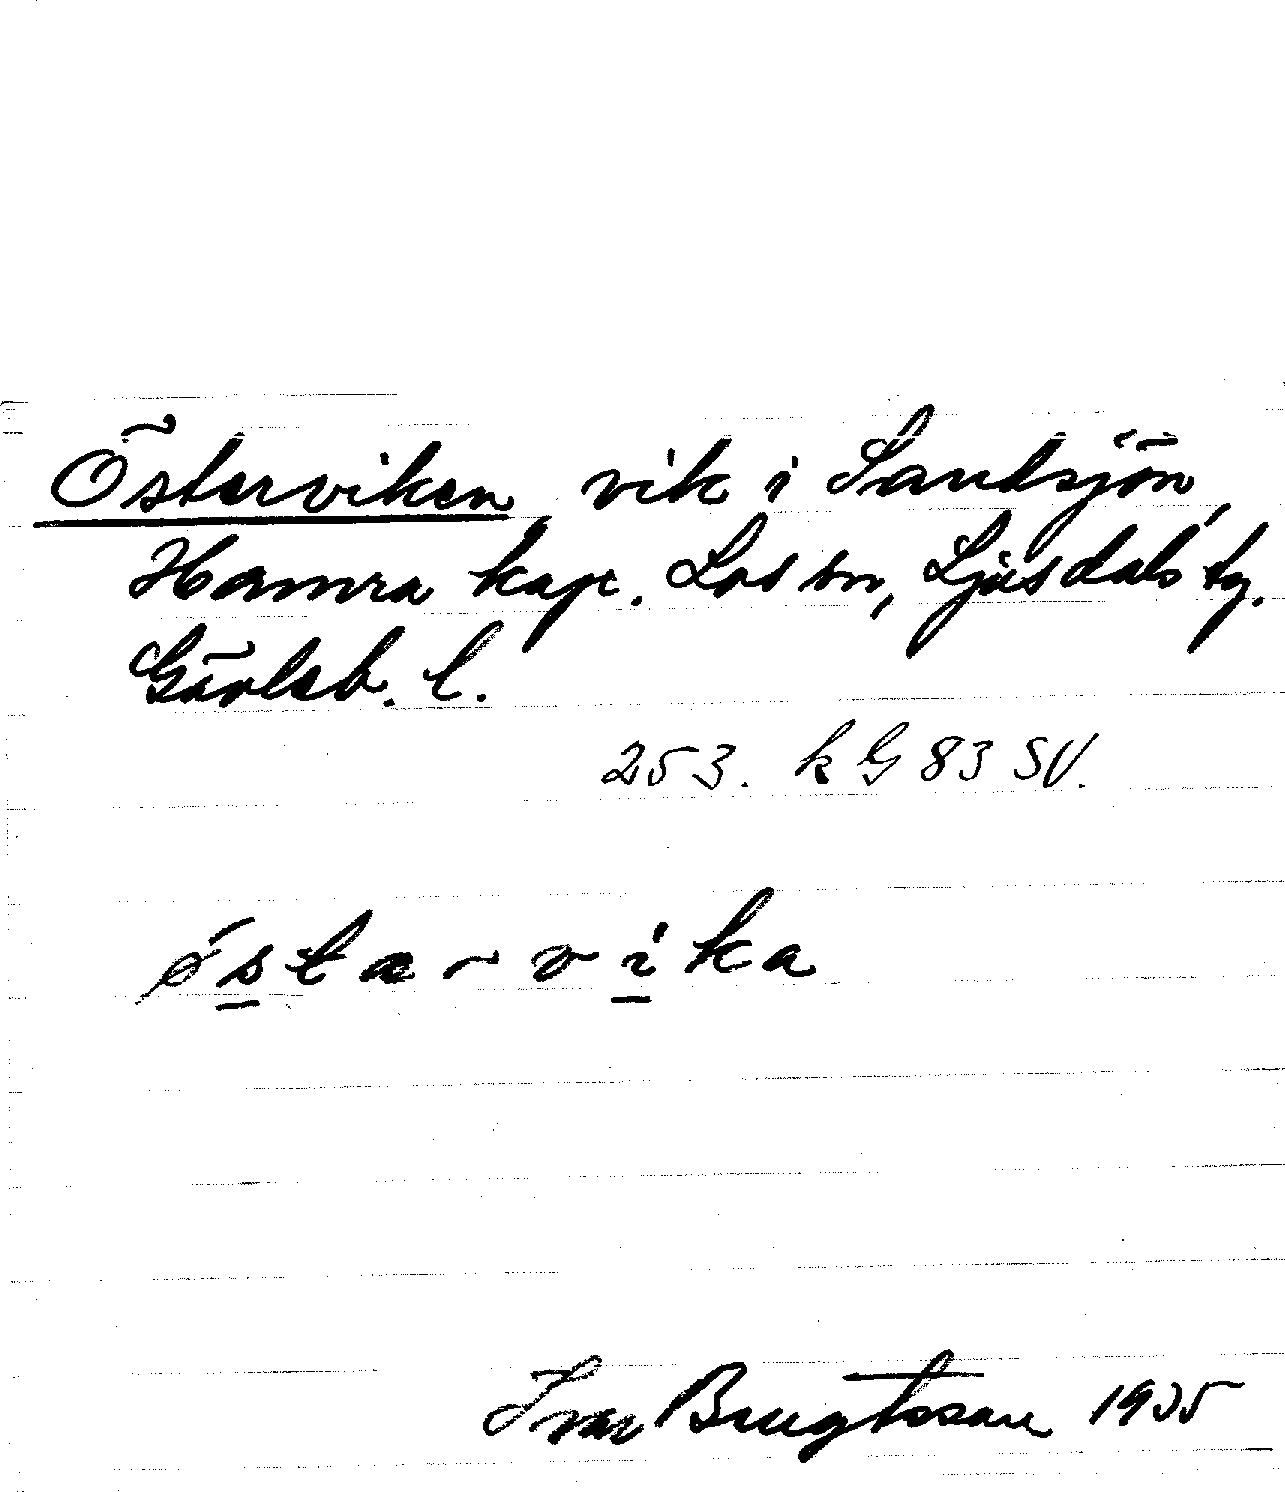 Österviken, vik i Sandsjön,
Hamra kap. Los sn, Ljusdals tg.
Gävleb. l.
253. kG 83 SV.
østǝr-vika
Ivar Bengtsson 1935